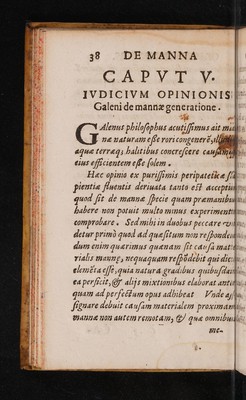 38 DE MANNA
CAPVT V.
IVDICIVM OPINIONIS
Galeni de mannæ generatione.
GAlenus philosophus acutissimus ait
næ naturam esse rori congenerē,
aquæ terræq; halitibus concrescere
eius efficientem esse solem.
Hæc opinio ex purissimis peripateticæ
pientiæ fluentis deriuata tanto est
quod sit de mannæ specie quam præ
habere non potuit multo minus
comprobare. Sed mihi in duobus peccare
detur primò quod ad quæsitum non
dum enim quærimus quænam sit causa
rialis mannę, nequaquam respōdebit qui
elemēta esse, quia natura gradibus
ea perficit, & alijs mixtionibus elaborat
quam ad perfectum opus adhibeat Vnde
signare debuit causam materialem
mannæ non autem remotam, & quæ
me-